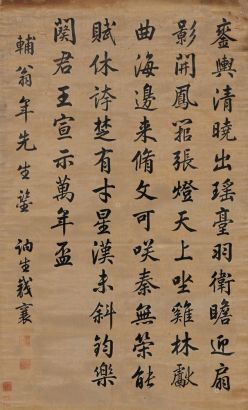 鑾輿清曉出瑤臺羽衛瞻迎扇
影開鳳沼張燈天上坐雞林獻
曲海邊來脩文可咲秦無策能
賦休誇楚有才星漢未斜鈞樂
闋君王宣示萬年盃
輔翁年先生鑒 訥生